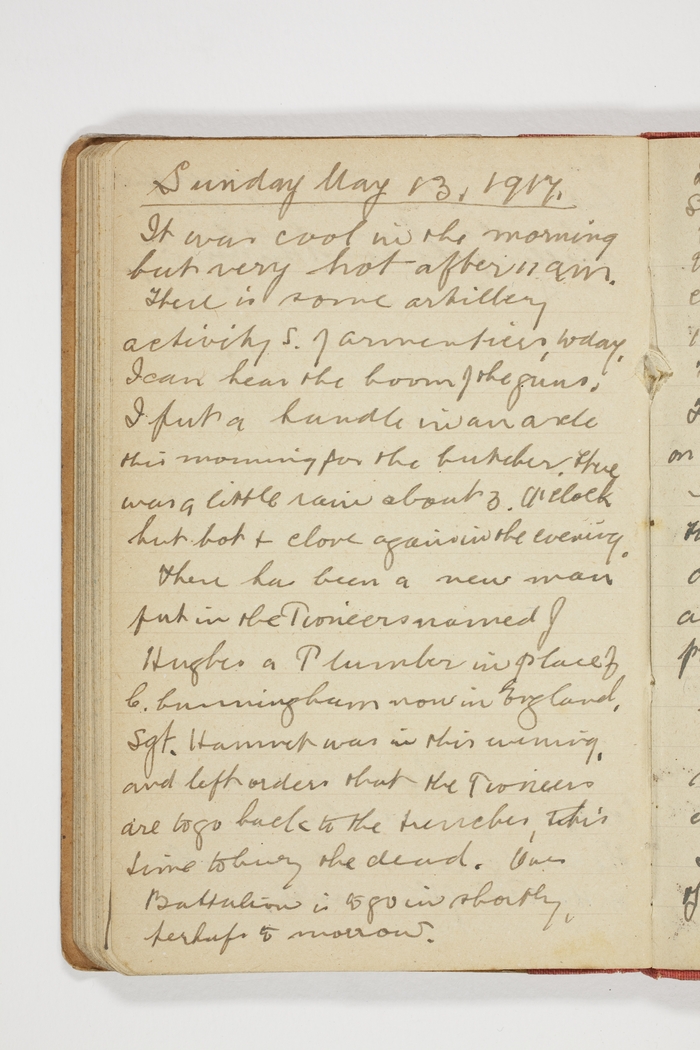 Sunday May 13, 1917.
It was cool in the morning
but very hot after 11 am.
There is some artillery
activity S. of Armentiers, today,
I can hear the boom of the guns.
I put a handle in an axle
this morning for the butcher. There
was a little rain about 3. O'clock
but hot & close again in the evening.
There has been a new man
put in the Pioneers named J
Hughes a Plumber in place of
C. Cunningham now in England.
Sgt. was in this evening,
and left orders that the Pioneers
are to go back to the trenches, this
time to bury the dead. Our
Battalion is to go in shortly,
perhaps to morrow.